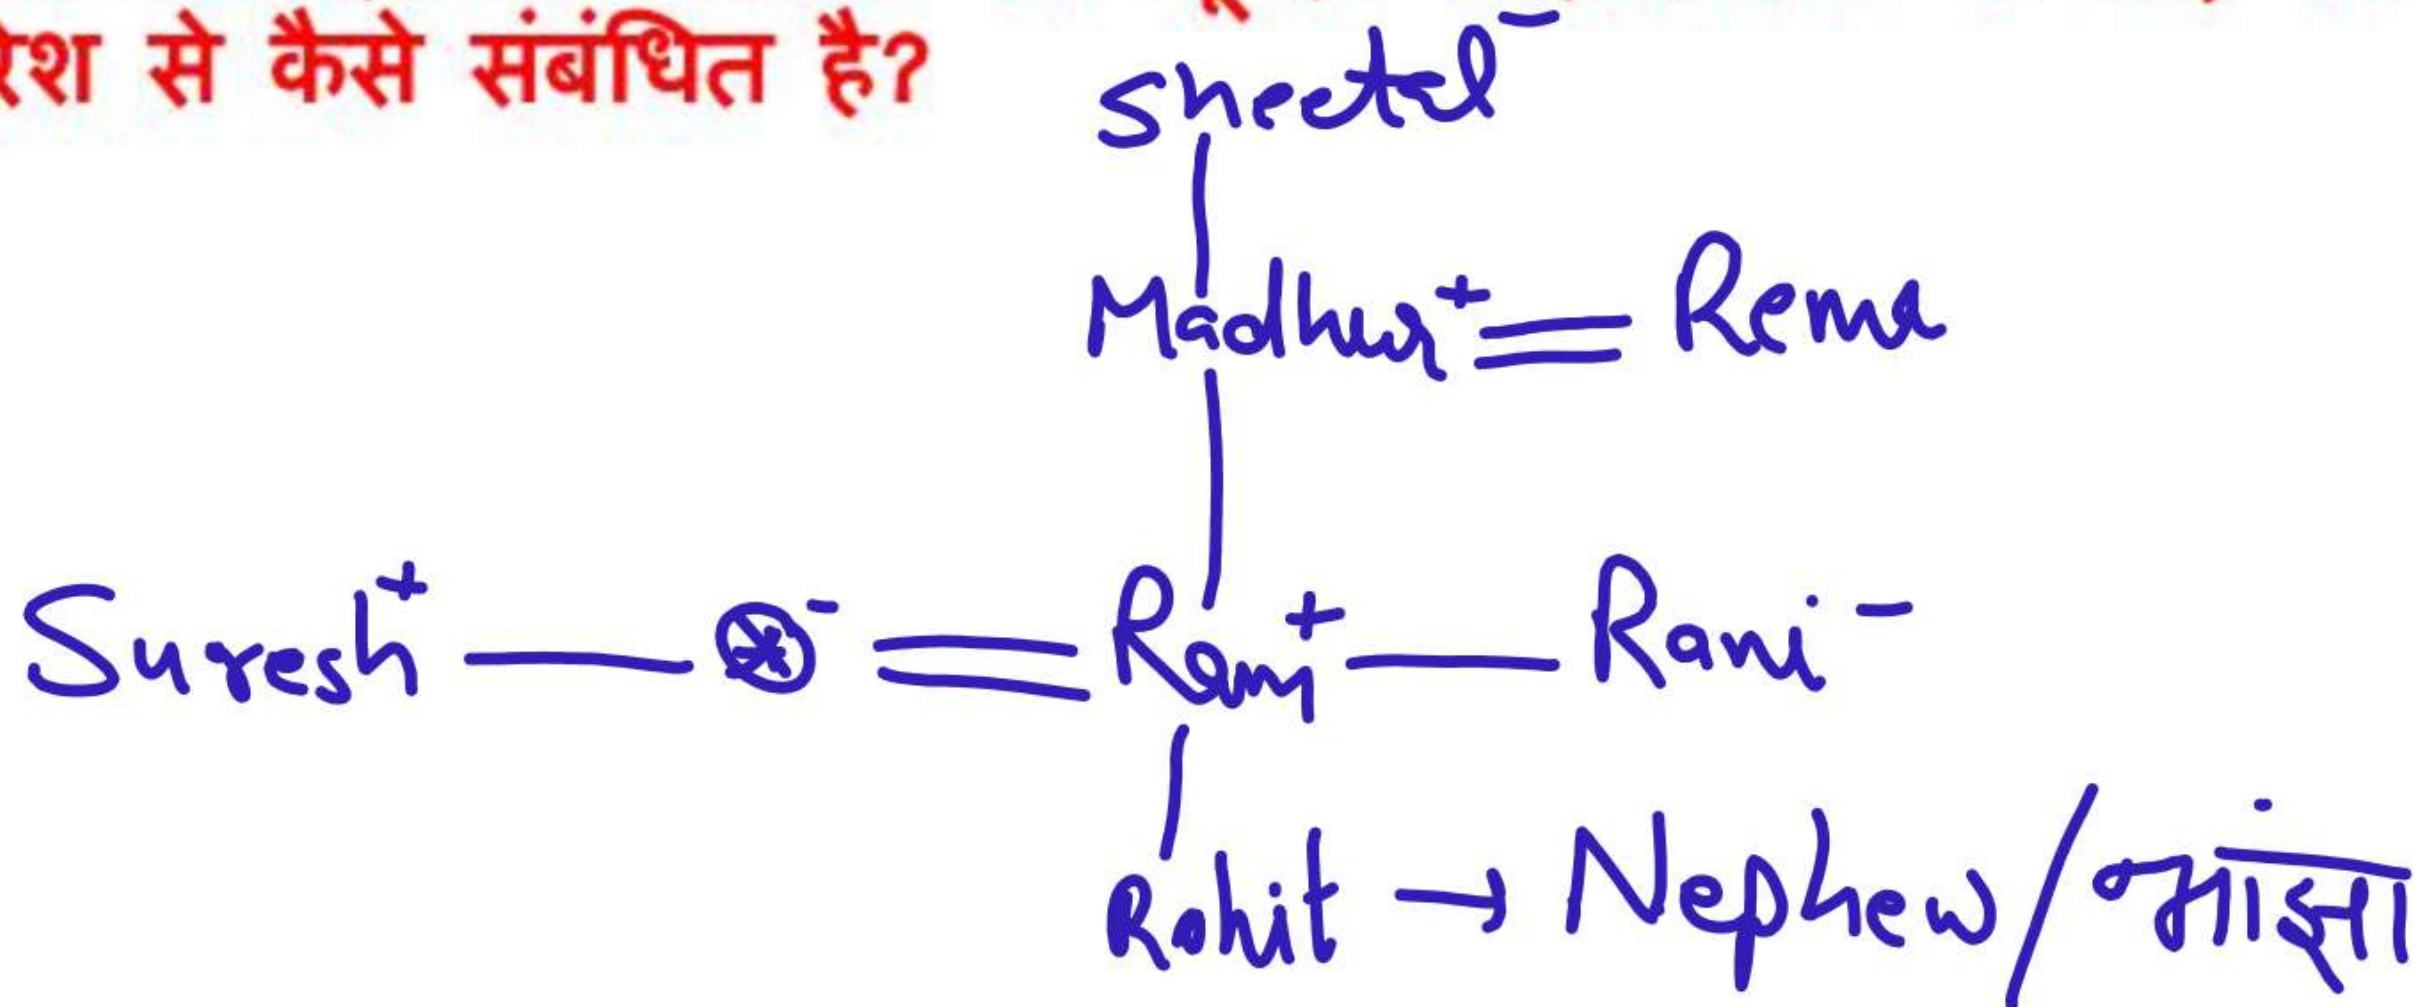 रेश से कैसे संबंधित है?
Sheetal -
Madhur + = Rema
Suresh + — - = Ram + — Rani -
Rohit → Nephew / भांझा